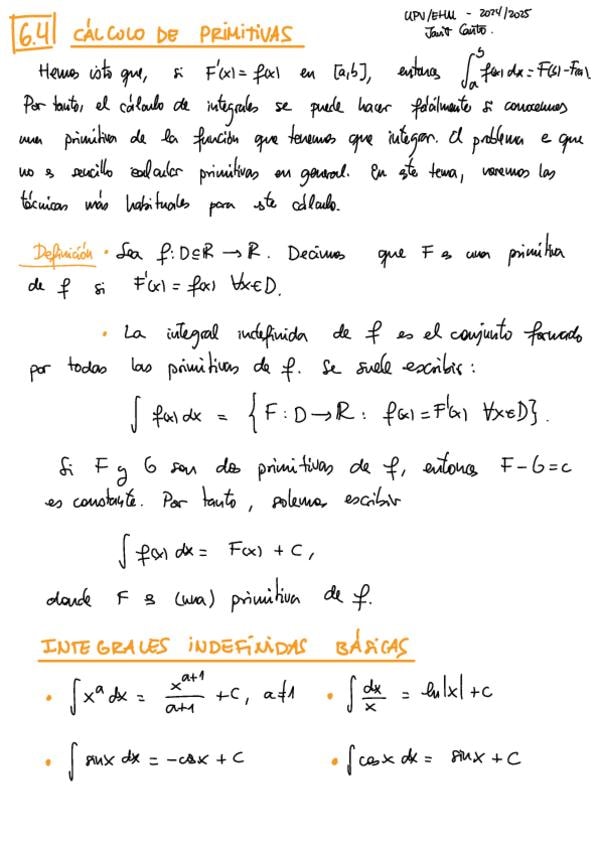 6.4 CÁLCULO DE PRIMITIVAS
UPV/EHU - 2024/2025
Javi Canto.
Hemos visto que, si F'(x) = f(x) en [a,b], entonces ∫_a^b f(x) dx = F(b) - F(a)
Por tanto, el cálculo de integrales se puede hacer fácilmente si conocemos
una primitiva de la función que tenemos que integrar. El problema e que
no es sencillo calcular primitivas en general. En este tema, veremos las
técnicas más habituales para este cálculo.
Definición · Sea f: D⊆R → R. Decimos que F es una primitiva
de f si F'(x) = f(x) ∀x∈D.
· La integral indefinida de f es el conjunto formado
por todas las primitivas de f. Se suele escribir:
∫ f(x) dx = { F: D → R : f(x) = F'(x) ∀x∈D}.
Si F y G son dos primitivas de f, entonces F - G = c
es constante. Por tanto, solemos escribir
∫ f(x) dx = F(x) + C,
donde F es (una) primitiva de f.
INTEGRALES INDEFINIDAS BÁSICAS
· ∫ x^a dx = x^(a+1)/(a+1) + C, a≠1 · ∫ dx/x = ln|x| + C
· ∫ sinx dx = -cosx + C · ∫ cosx dx = sinx + C